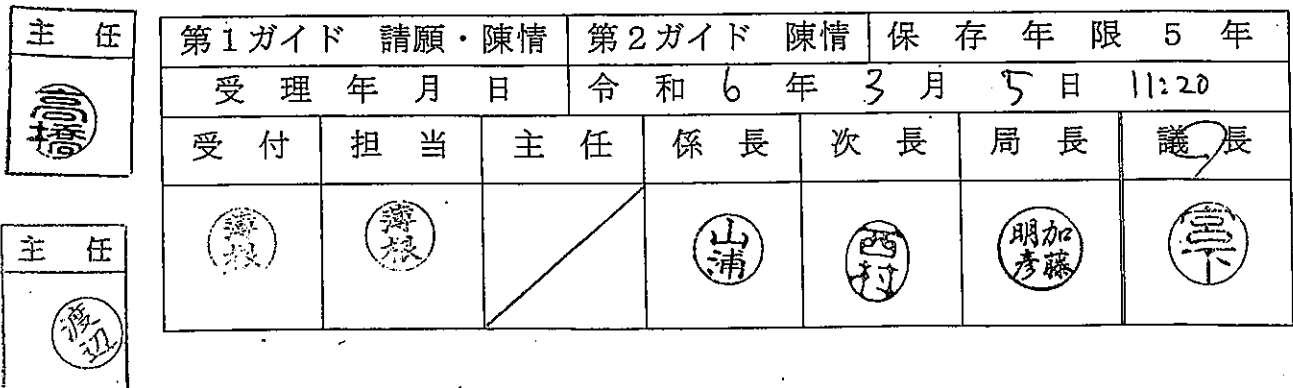 主任
高橋
第1ガイド 請願・陳情 第2ガイド 陳情 保存年限5年
受理年月日 令和6年3月5日 11:20
受付 担当 主任 係長 次長 局長 議長
薄根 薄根 山浦 西村 加藤明彦 宮下
主任
渡辺